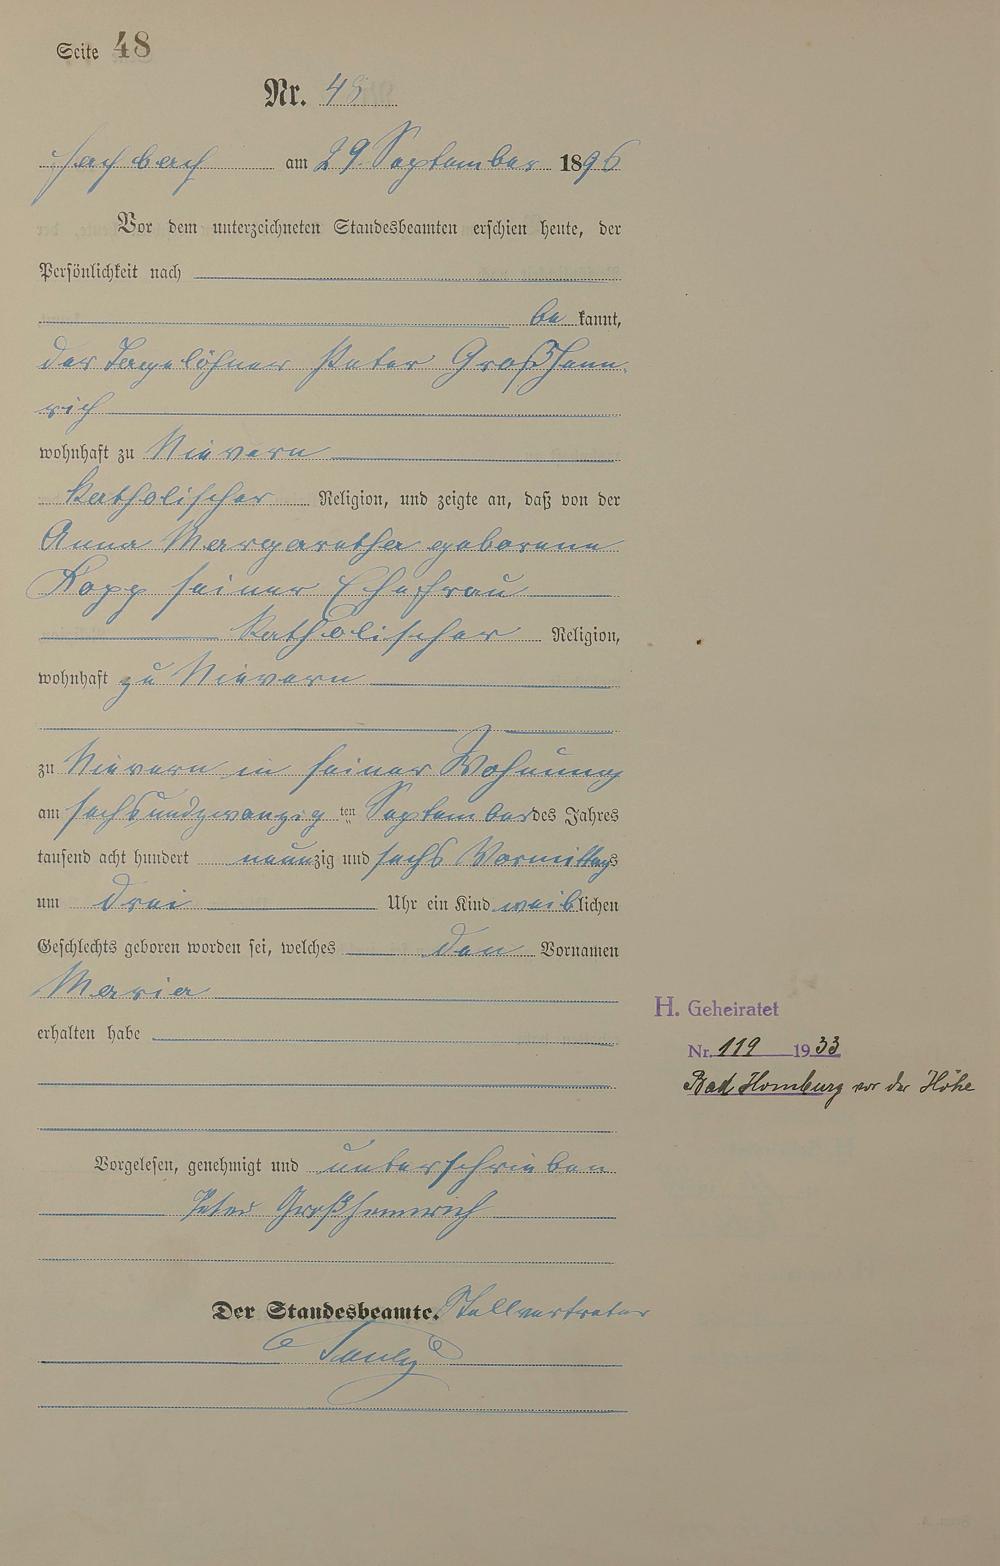 Seite 48
Nr. 48
Fachbach am 29 September 1896
Vor dem unterzeichneten Standesbeamten erschien heute, der
Persönlichkeit nach
be kannt,
der Tagelöhner Peter Großhenn-
rich
wohnhaft zu Nievern
katholischer Religion, und zeigte an, daß von der
Anna Margaretha geborene
Kopp seiner Ehefrau
katholischer Religion,
wohnhaft zu Nievern
zu Nievern in seiner Wohnung
am sechsundzwanzig ten September des Jahres
tausend acht hundert neunzig und sechs Vormittags
um drei Uhr ein Kind weiblichen
Geschlechts geboren worden sei, welches den Vornamen
Maria
erhalten habe
H. Geheiratet
Nr. 119 1933
Bad Homburg vor der Höhe
Vorgelesen, genehmigt und unterschrieben
Peter Großhennrich
Der Standesbeamte. Stellvertreter
Pauly